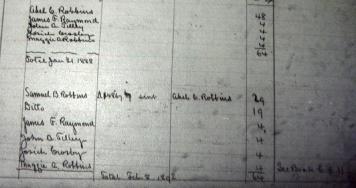 Abel C. Robbins 48
James F. Raymond 4
John A. Tilley 4
Josiah Crosby 4
Maggie A Robbins 4
64
Total Jan 21 1888
Samuel B Robbins Abel C. Robbins 29
Ditto 19
James F. Raymond 4
John A Tilley 4
Josiah Crosby 4
Maggie A Robbins 4
Total Feb. 8. 64 See Book